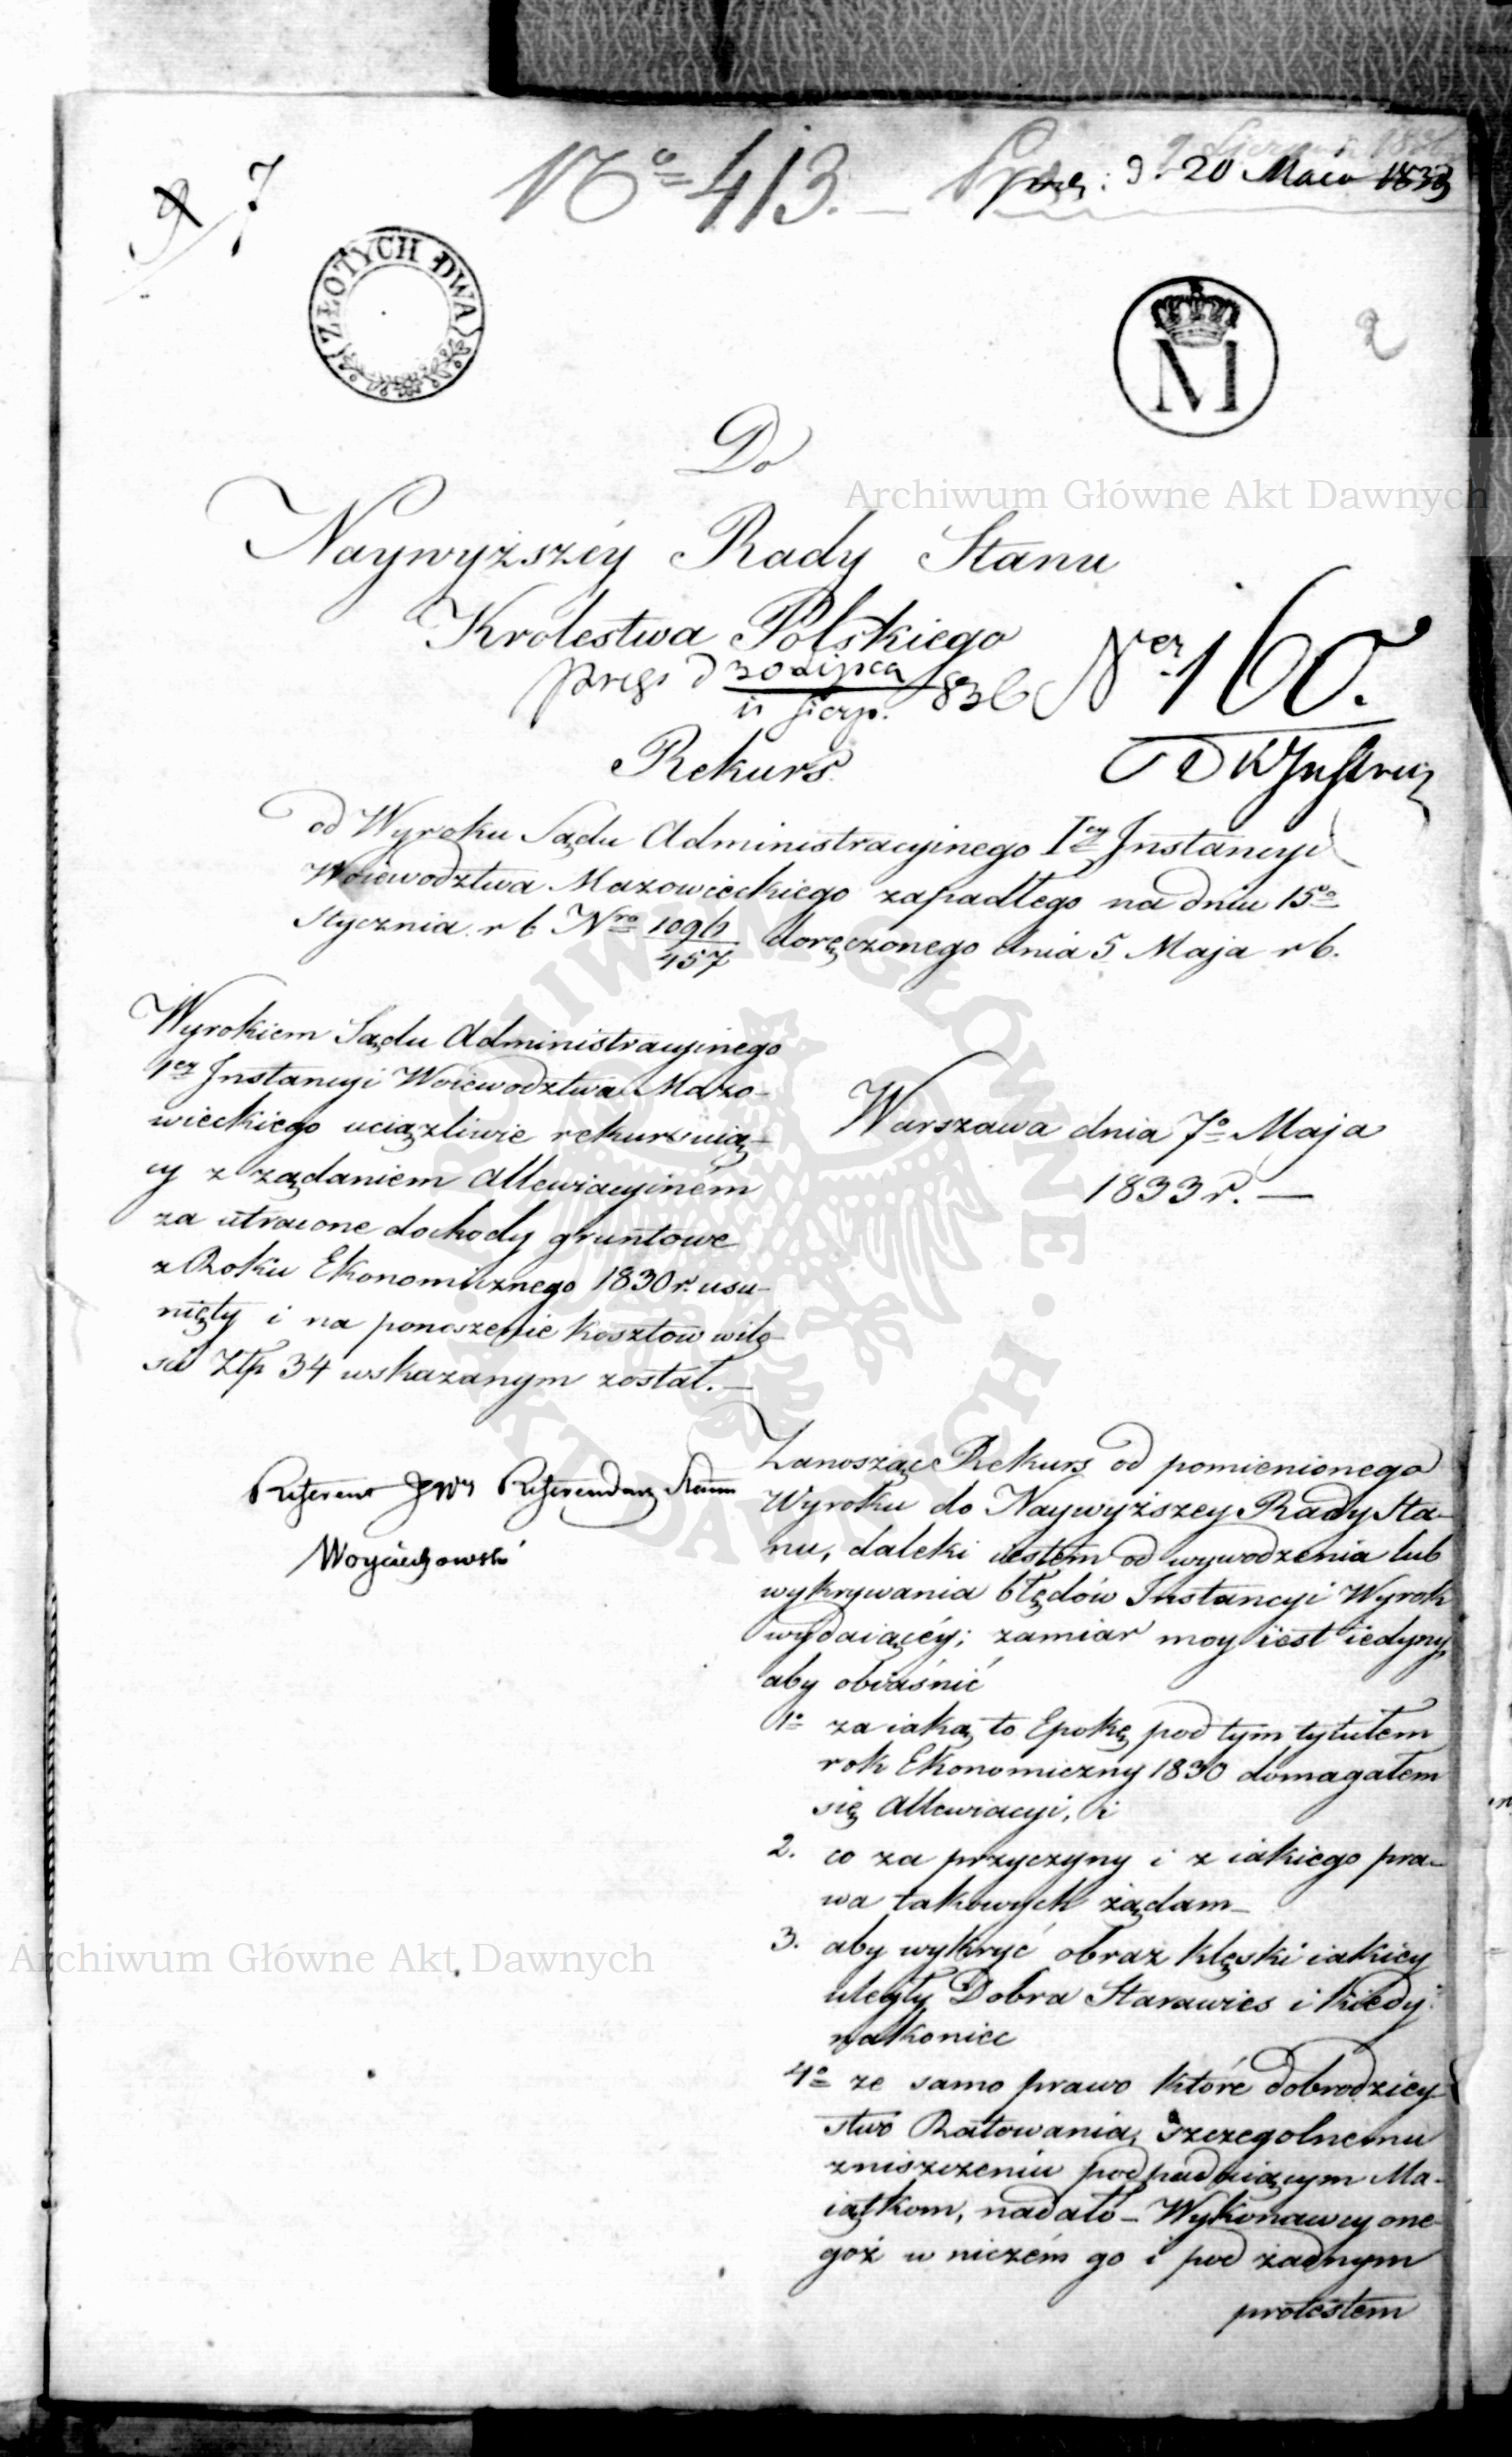 7
Nº 413. —
9 Sierpnia 1836
prez: d. 20 Maia 1833
ZŁOTYCH DWA
M
2
Do
Naywyższéy Rady Stanu
Krolestwa Polskiego
prez d 30 Lipca / 11 Sierp. 836
Ner 160.
Rekurs
od Wyroku Sądu Administracyinego Iey Instancyi
Woiewodztwa Mazowieckiego zapadłego na dniu 15o
Stycznia r b Nro 1096/457 doręczonego dnia 5 Maja r b.
Wyrokiem Sądu Administracyinego
1ey Instancyi Woiewodztwa Mazo-
wieckiego uciążliwie rekursuią-
cy z żądaniem Allewiacyiném
za utracone dochody gruntowe
z Roku Ekonomicznego 1830 r. usu-
nięty i na ponoszenie kosztow wilo-
sci Złp 34 wskazanym został. —
Warszawa dnia 7o Maja
1833 r. —
Referent JW Referendarz Stanu
Woyciechowski
Zanosząc Rekurs od pomienionego
Wyroku do Naywyższey Rady Sta-
nu, daleki iestem od wywodzenia lub
wykrywania błędów Instancyi Wyrok
wydaiącéy; zamiar moy iest iedyny
aby obiaśnić
1o za iaką to Epokę pod tym tytułem
rok Ekonomiczny 1830 domagałem
się Allewiacyi, i
2. co za przyczyny i z iakiego pra-
wa takowych żądam —
3. aby wykryć obraz klęski iakiey
uległy Dobra Starawies i kiedy
nakoniec
4o ze samo prawo które dobrodziey-
stwo Ratowania, szczegolnemu
zniszczeniu podpadaiącym Ma-
iątkom, nadało — Wykonawcy one-
goż w niczém go i pod żadnym
protestem
Archiwum Główne Akt Dawnych
Archiwum Główne Akt Dawnych
ARCHIWUM GŁÓWNE · AKT DAWNYCH ·